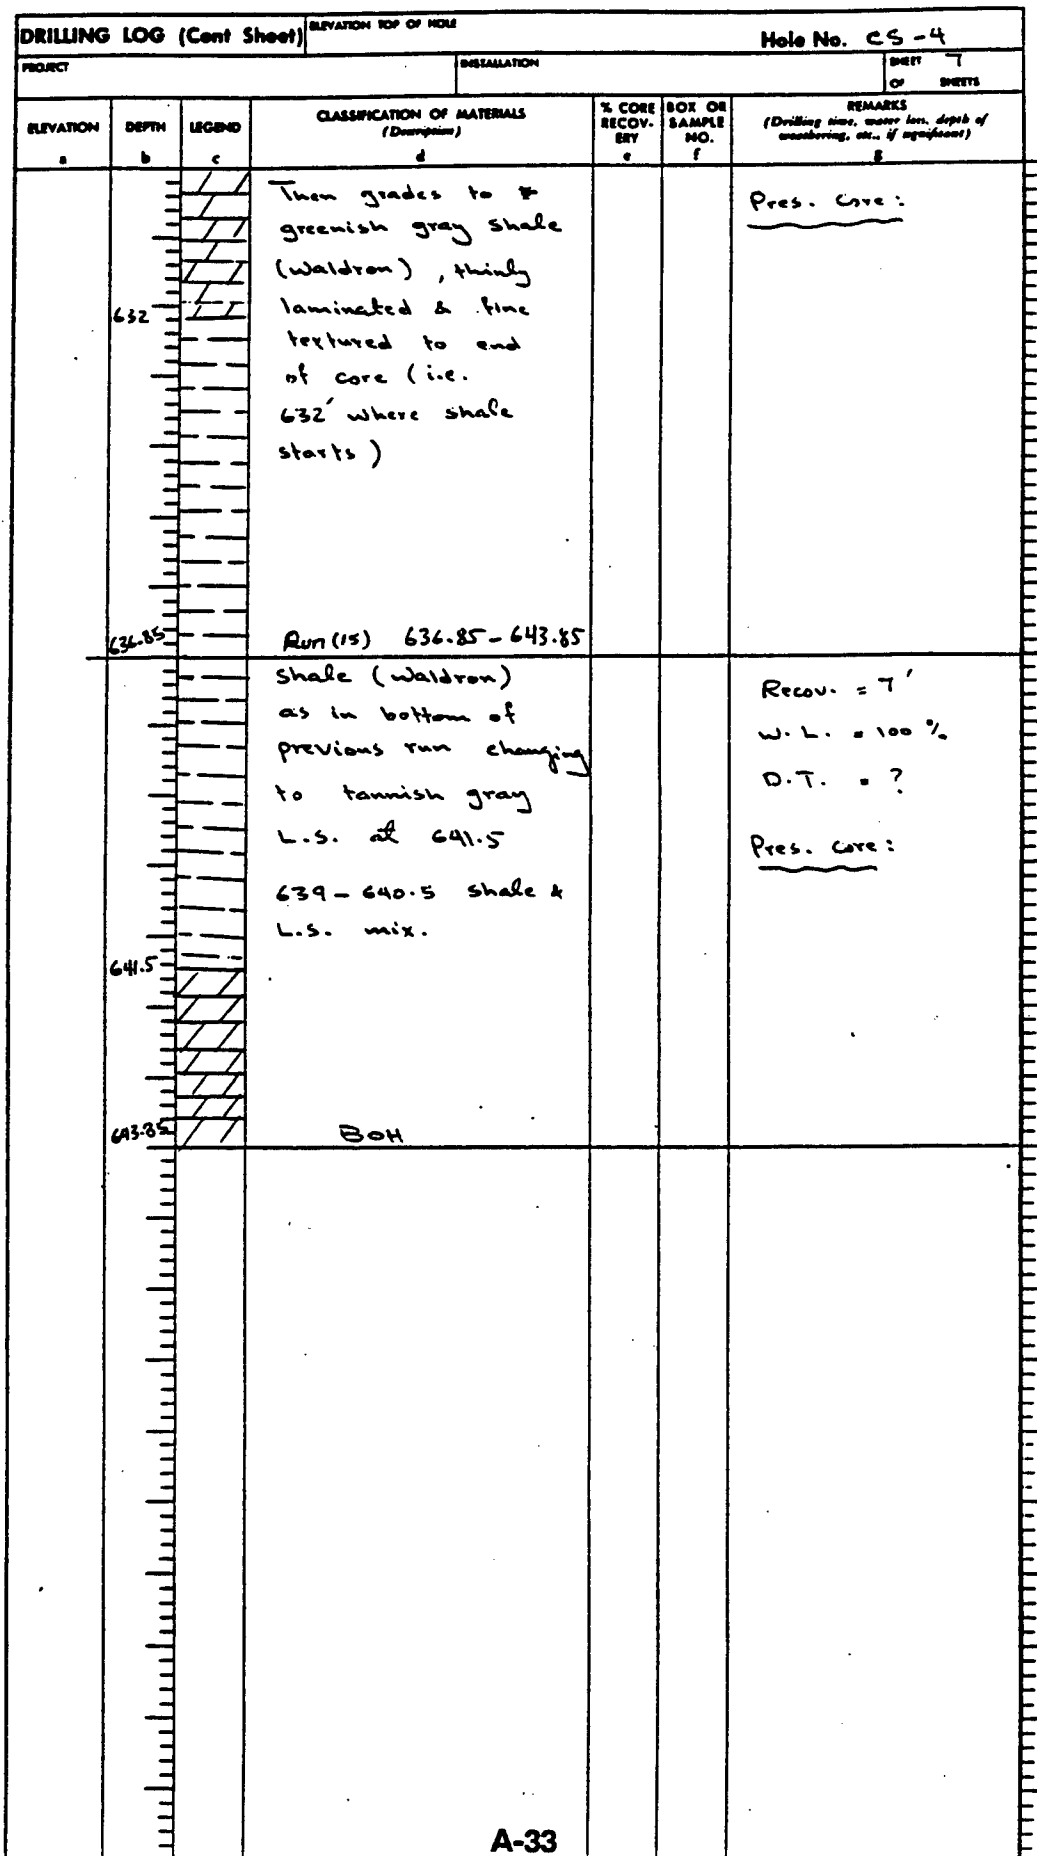 DRILLING LOG (Cont Sheet)
ELEVATION TOP OF HOLE
Hole No. CS-4
PROJECT
INSTALLATION
SHEET 7
OF SHEETS
ELEVATION
a
DEPTH
b
LEGEND
c
CLASSIFICATION OF MATERIALS
(Description)
d
% CORE
RECOV-
ERY
e
BOX OR
SAMPLE
NO.
f
REMARKS
(Drilling time, water loss, depth of
weathering, etc., if significant)
g
Then grades to
greenish gray shale
(Waldron), thinly
laminated & fine
textured to end
of core (i.e.
632' where shale
starts)
Pres. Core:
632
636.85
Run (15) 636.85 - 643.85
Shale (Waldron)
as in bottom of
previous run changing
to tannish gray
L.S. at 641.5
639 - 640.5 shale &
L.S. mix.
Recov. = 7'
W.L. = 100 %
D.T. = ?
Pres. Core:
641.5
643.85
BOH
A-33